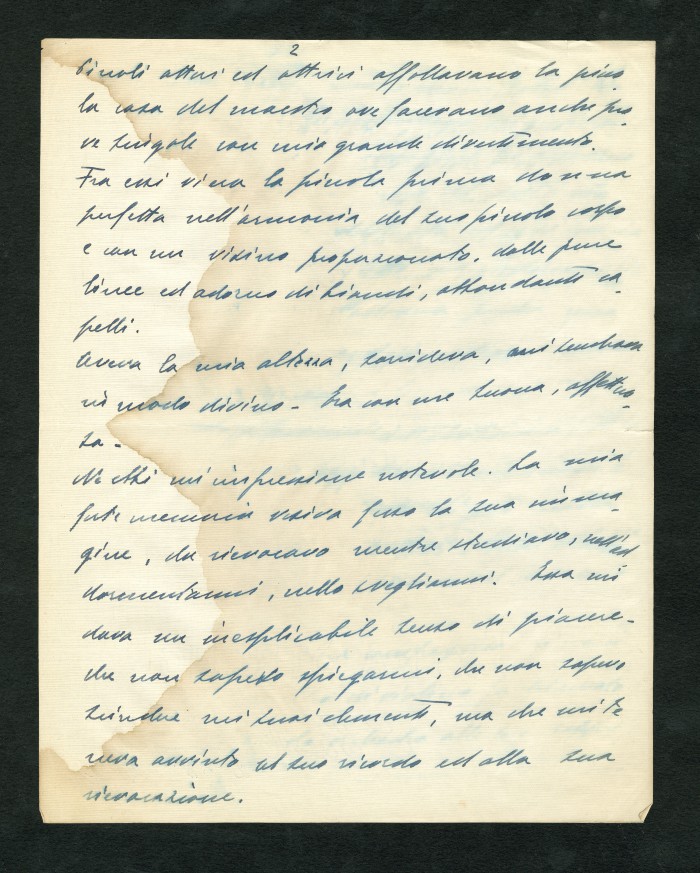 2
Piccoli attori ed attrici affollavano la picco
la casa del maestro ove facevano anche pro
ve singole con mio grande divertimento.
Fra essi v'era la piccola prima donna
perfetta nell'armonia del suo piccolo corpo
e con un visino proporzionato, dalle pure
linee ed adorno di biondi, abbondanti ca-
pelli.
Aveva la mia altezza, sorrideva, mi sembrava
in modo divino - Era con me buona, affettuo-
sa -
Ne ebbi un'impressione notevole. La mia
forte memoria visiva fissò la sua imma-
gine, che rievocavo mentre studiavo, nell'ad
dormentarmi, nello svegliarmi. Essa mi
dava un inesplicabile senso di piacere -
che non sapevo spiegarmi, che non sapevo
scindere nei suoi elementi, ma che mi te
neva avvinto al suo ricordo ed alla sua
rievocazione.